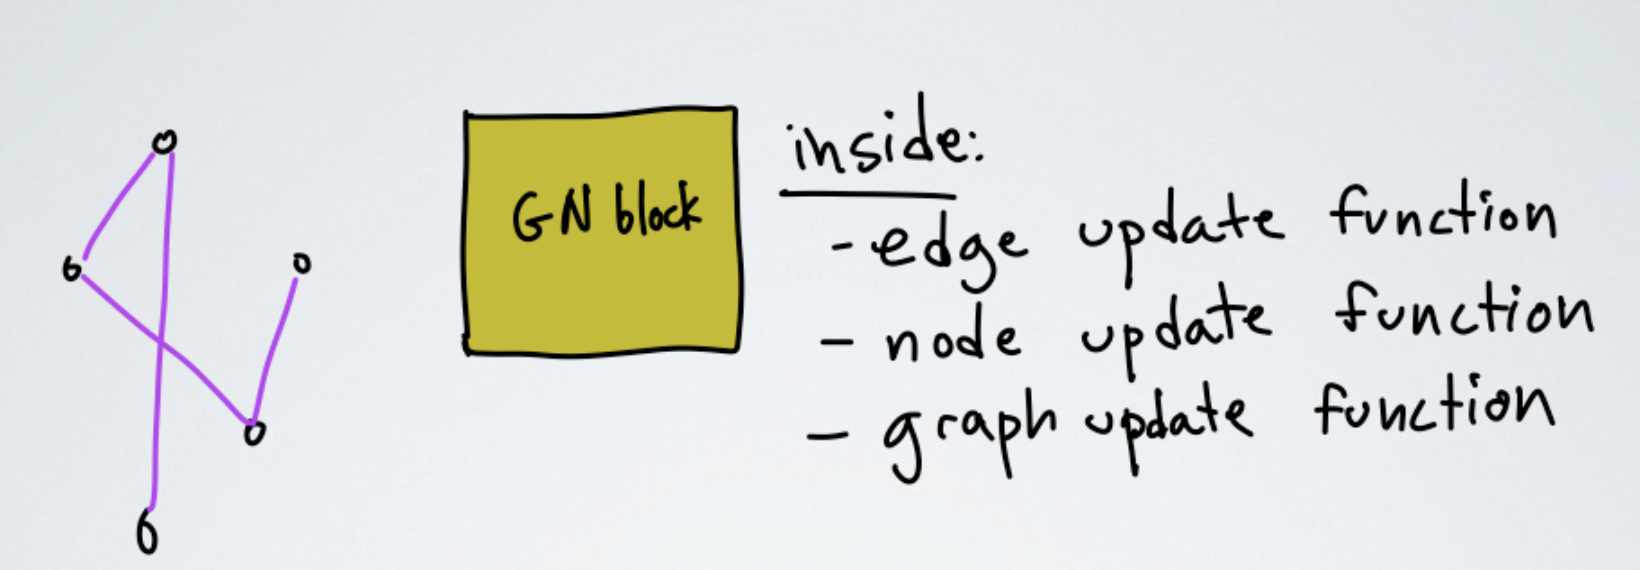 GN block
inside:
- edge update function
- node update function
- graph update function